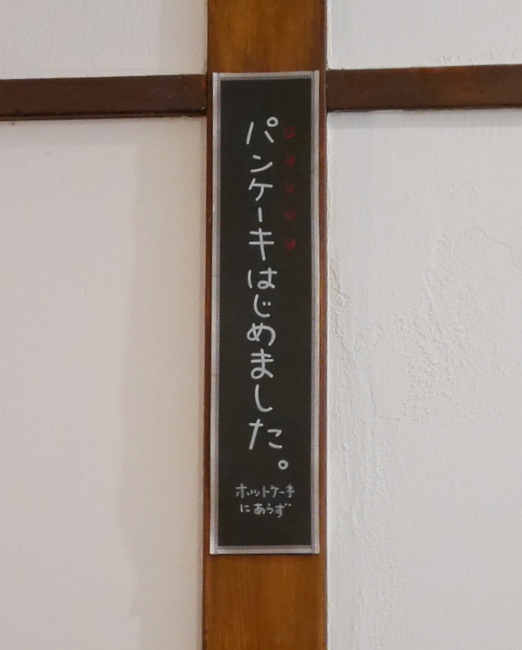 パンケーキはじめました。
ホットケーキ
にあらず